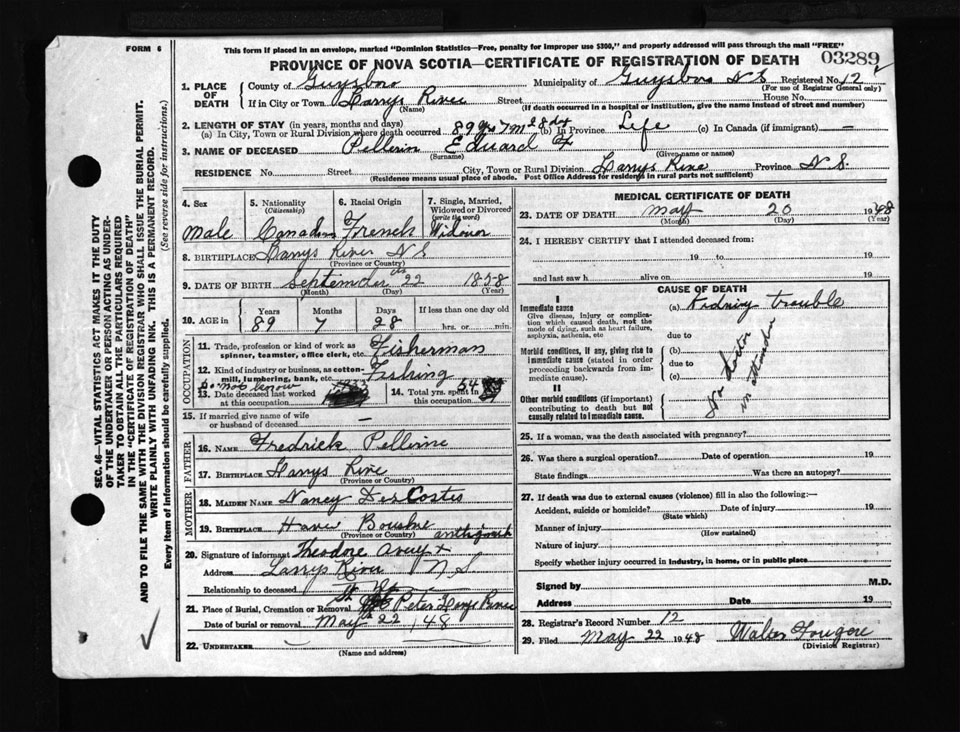 FORM 6
This form if placed in an envelope, marked "Dominion Statistics—Free, penalty for improper use $300," and properly addressed will pass through the mail "FREE"
PROVINCE OF NOVA SCOTIA—CERTIFICATE OF REGISTRATION OF DEATH
03289
1. PLACE OF DEATH
County of Guysboro Municipality of Guysboro N S Registered No. 12
(For use of Registrar General only)
If in City or Town Larrys River Street House No.
(Name) (If death occurred in a hospital or institution, give the name instead of street and number)
2. LENGTH OF STAY (in years, months and days)
(a) In City, Town or Rural Division where death occurred 89 yrs 7 m 28 dys (b) In Province Life (c) In Canada (if immigrant) —
3. NAME OF DECEASED Pellerin Eduard
(Surname) (Given name or names)
RESIDENCE No. Street City, Town or Rural Division Larrys River Province N S.
(Residence means usual place of abode. Post Office Address for residents in rural parts not sufficient)
4. Sex Male
5. Nationality (Citizenship) Canadian
6. Racial Origin French
7. Single, Married, Widowed or Divorced (write the word) Widower
8. BIRTHPLACE Larrys River N S
(Province or Country)
9. DATE OF BIRTH September 22 1858
(Month) (Day) (Year)
10. AGE in Years Months Days If less than one day old
89 7 28 hrs. or min.
OCCUPATION
11. Trade, profession or kind of work as spinner, teamster, office clerk, etc. Fisherman
12. Kind of industry or business, as cotton-mill, lumbering, bank, etc. Fishing
Do not know
13. Date deceased last worked at this occupation
14. Total yrs. spent in this occupation 54
15. If married give name of wife or husband of deceased —
FATHER
16. NAME Fredrick Pellerine
17. BIRTHPLACE Larrys River
(Province or Country)
MOTHER
18. MAIDEN NAME Nancy DesCostes
19. BIRTHPLACE Havre Boushie
(Province or Country) antigonish
20. Signature of informant Theodore Avery x
Address Larrys River N S
Relationship to deceased
21. Place of Burial, Cremation or Removal St Peter Larrys River
Date of burial or removal May 22 / 48
22. UNDERTAKER
(Name and address)
MEDICAL CERTIFICATE OF DEATH
23. DATE OF DEATH May 20 1948
(Month) (Day) (Year)
24. I HEREBY CERTIFY that I attended deceased from:
19 to 19
and last saw h alive on 19
CAUSE OF DEATH
I
Immediate cause (a) Kidniy trouble
Give disease, injury or complication which caused death, not the mode of dying, such as heart failure, asphyxia, asthenia, etc
due to
Morbid conditions, if any, giving rise to immediate cause (stated in order proceeding backwards from immediate cause).
(b)
due to
(c)
No doctor
in attendance
II
Other morbid conditions (if important) contributing to death but not causally related to immediate cause.
25. If a woman, was the death associated with pregnancy?
26. Was there a surgical operation? Date of operation 19
State findings Was there an autopsy?
27. If death was due to external causes (violence) fill in also the following:—
Accident, suicide or homicide? Date of injury 19
(State which)
Manner of injury
(How sustained)
Nature of injury
Specify whether injury occurred in industry, in home, or in public place
Signed by M.D.
Address Date 19
28. Registrar's Record Number 12
29. Filed May 22 1948 Walter Fougere
(Division Registrar)
SEC. 46—VITAL STATISTICS ACT MAKES IT THE DUTY
OF THE UNDERTAKER OR PERSON ACTING AS UNDER-
TAKER TO OBTAIN ALL THE PARTICULARS REQUIRED
IN THE "CERTIFICATE OF REGISTRATION OF DEATH"
AND TO FILE THE SAME WITH THE DIVISION REGISTRAR WHO SHALL ISSUE THE BURIAL PERMIT.
WRITE PLAINLY WITH UNFADING INK. THIS IS A PERMANENT RECORD.
Every item of information should be carefully supplied. (See reverse side for instructions.)